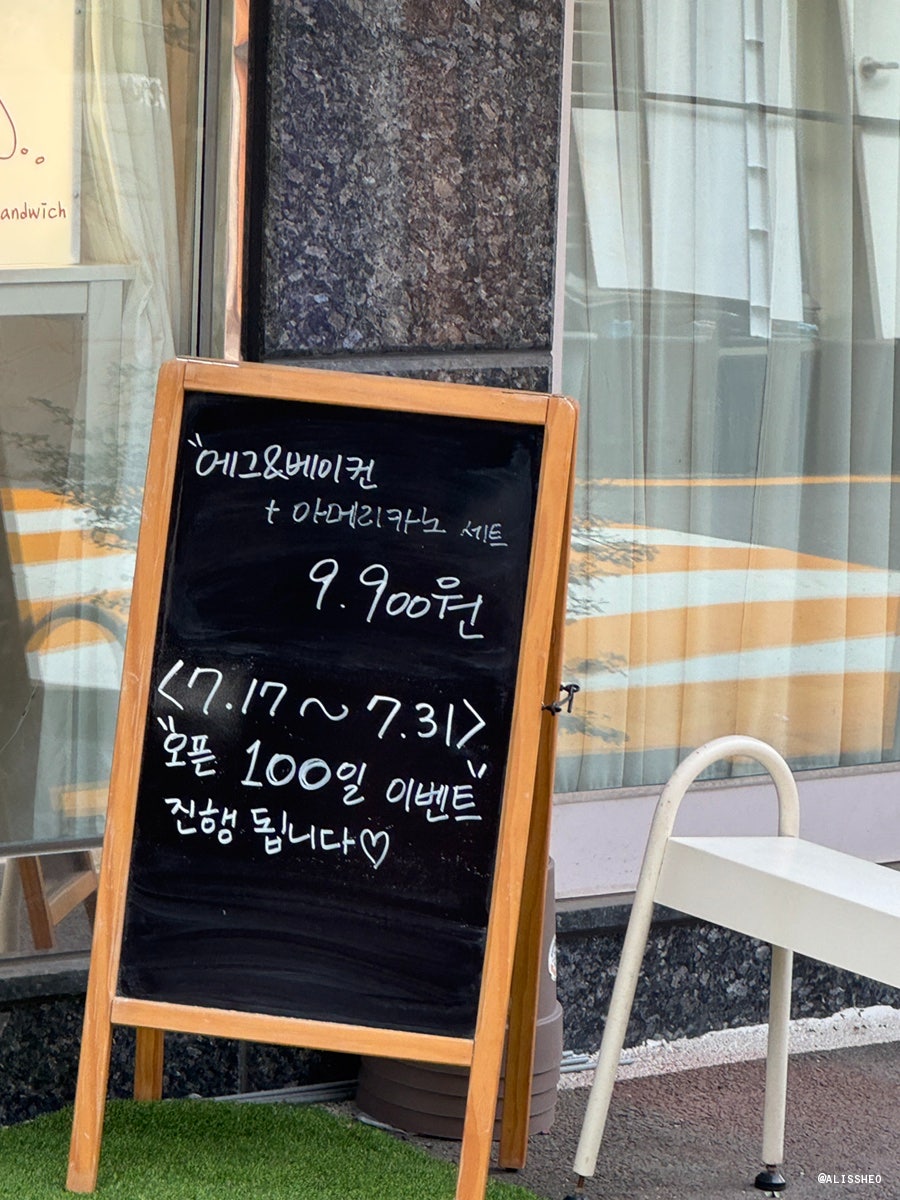 andwich
"에그&베이컨
+ 아메리카노 세트
9.900원
<7.17 ~ 7.31>
"오픈 100일 이벤트"
진행 됩니다♡
@ALISSHEO